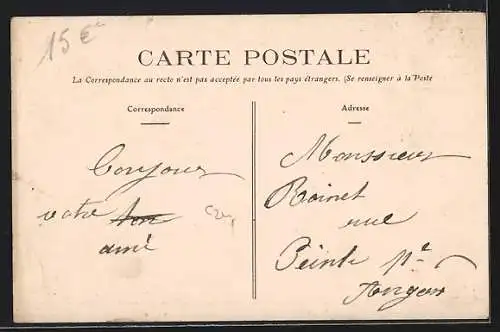 15 €
CARTE POSTALE
La Correspondance au recto n'est pas acceptée par tous les pays étrangers. (Se renseigner à la Poste
Correspondance
Adresse
Bonjour
votre ton
ami
Monsieur
Boinet
rue
Angers